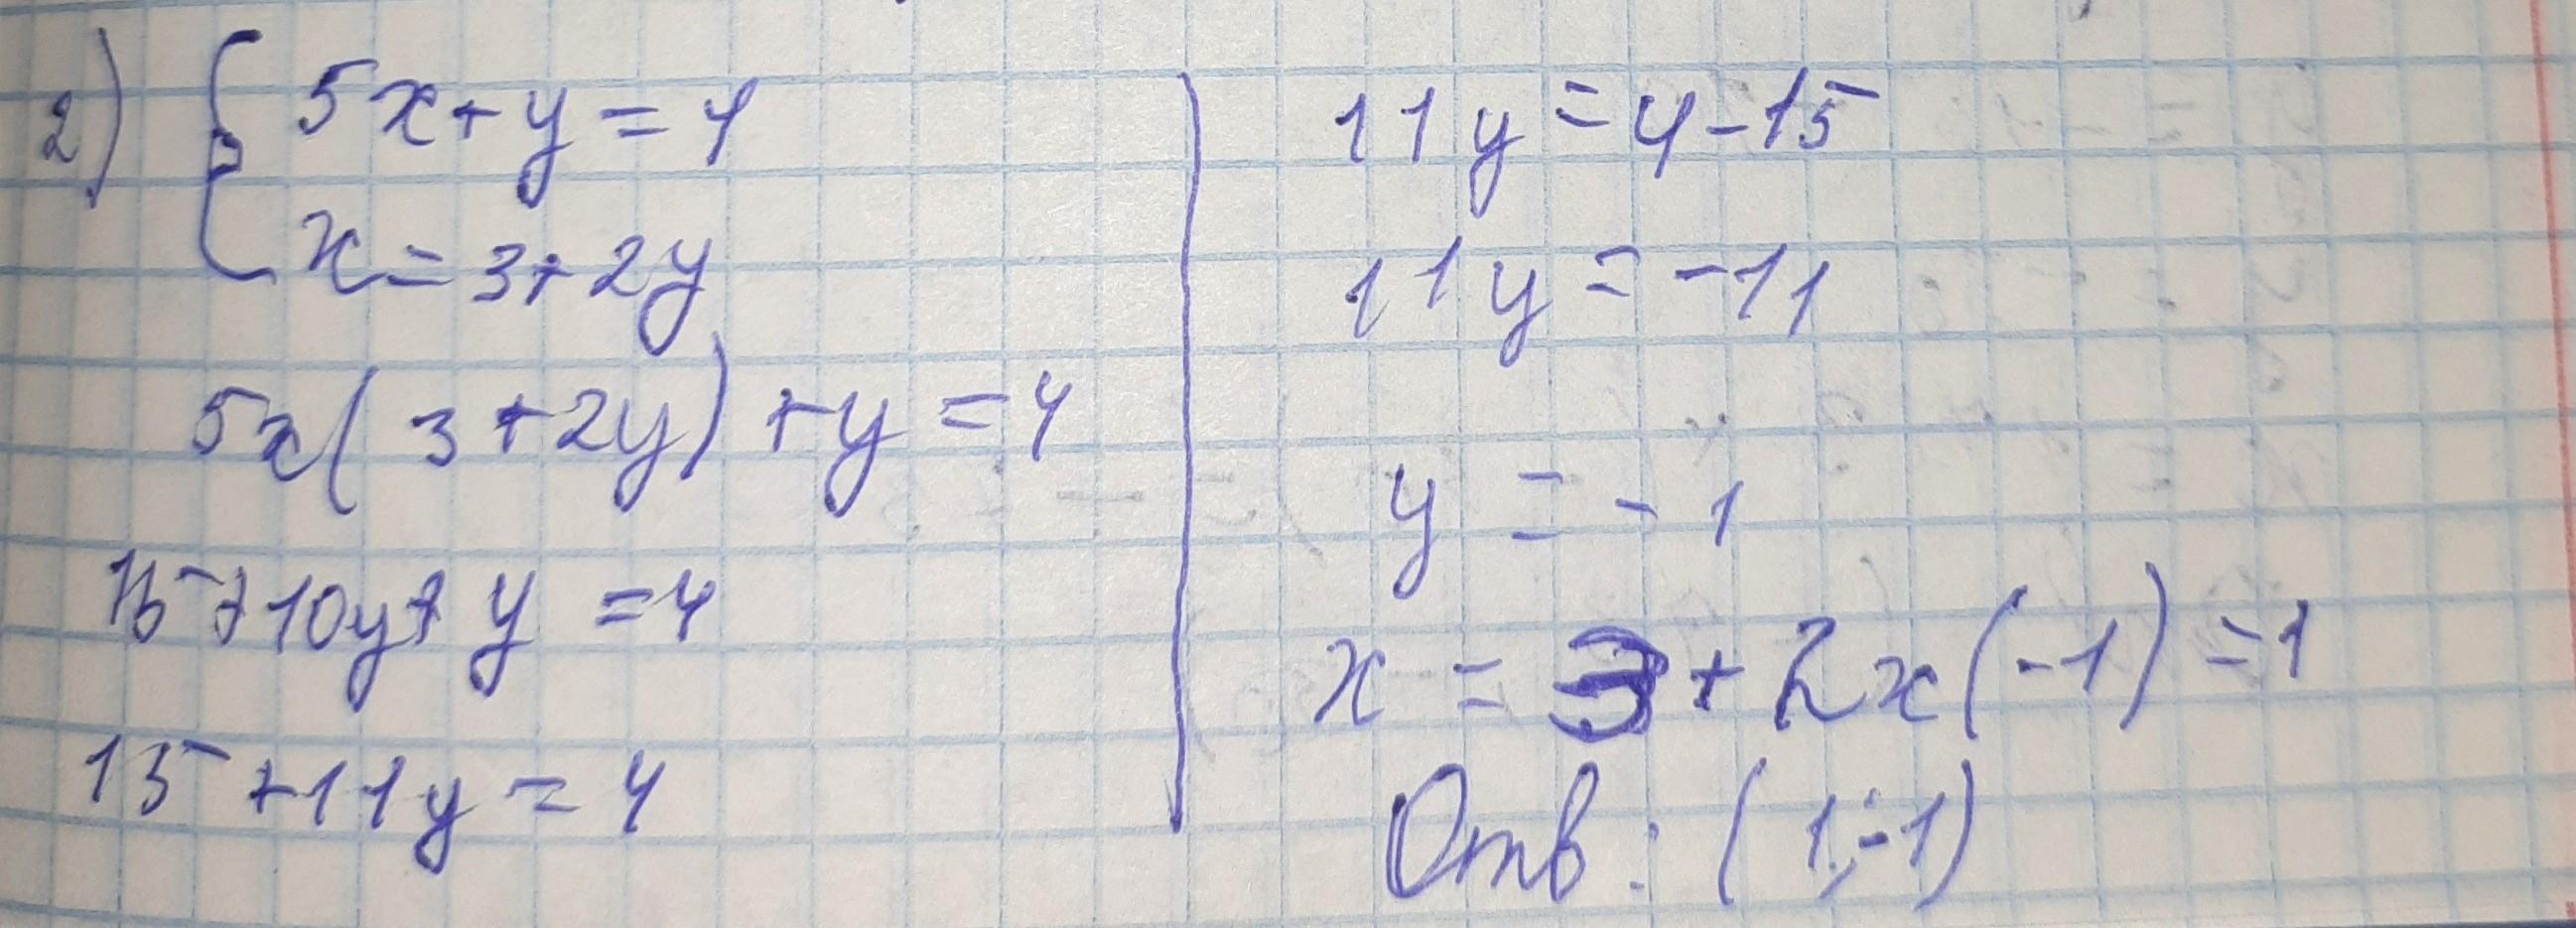 2) { 5x+y=4
x=3+2y
5x(3+2y)+y=4
15+10y+y=4
15+11y=4
11y=4-15
11y=-11
y=-1
x=3+2x(-1)=1
Отв: (1;-1)